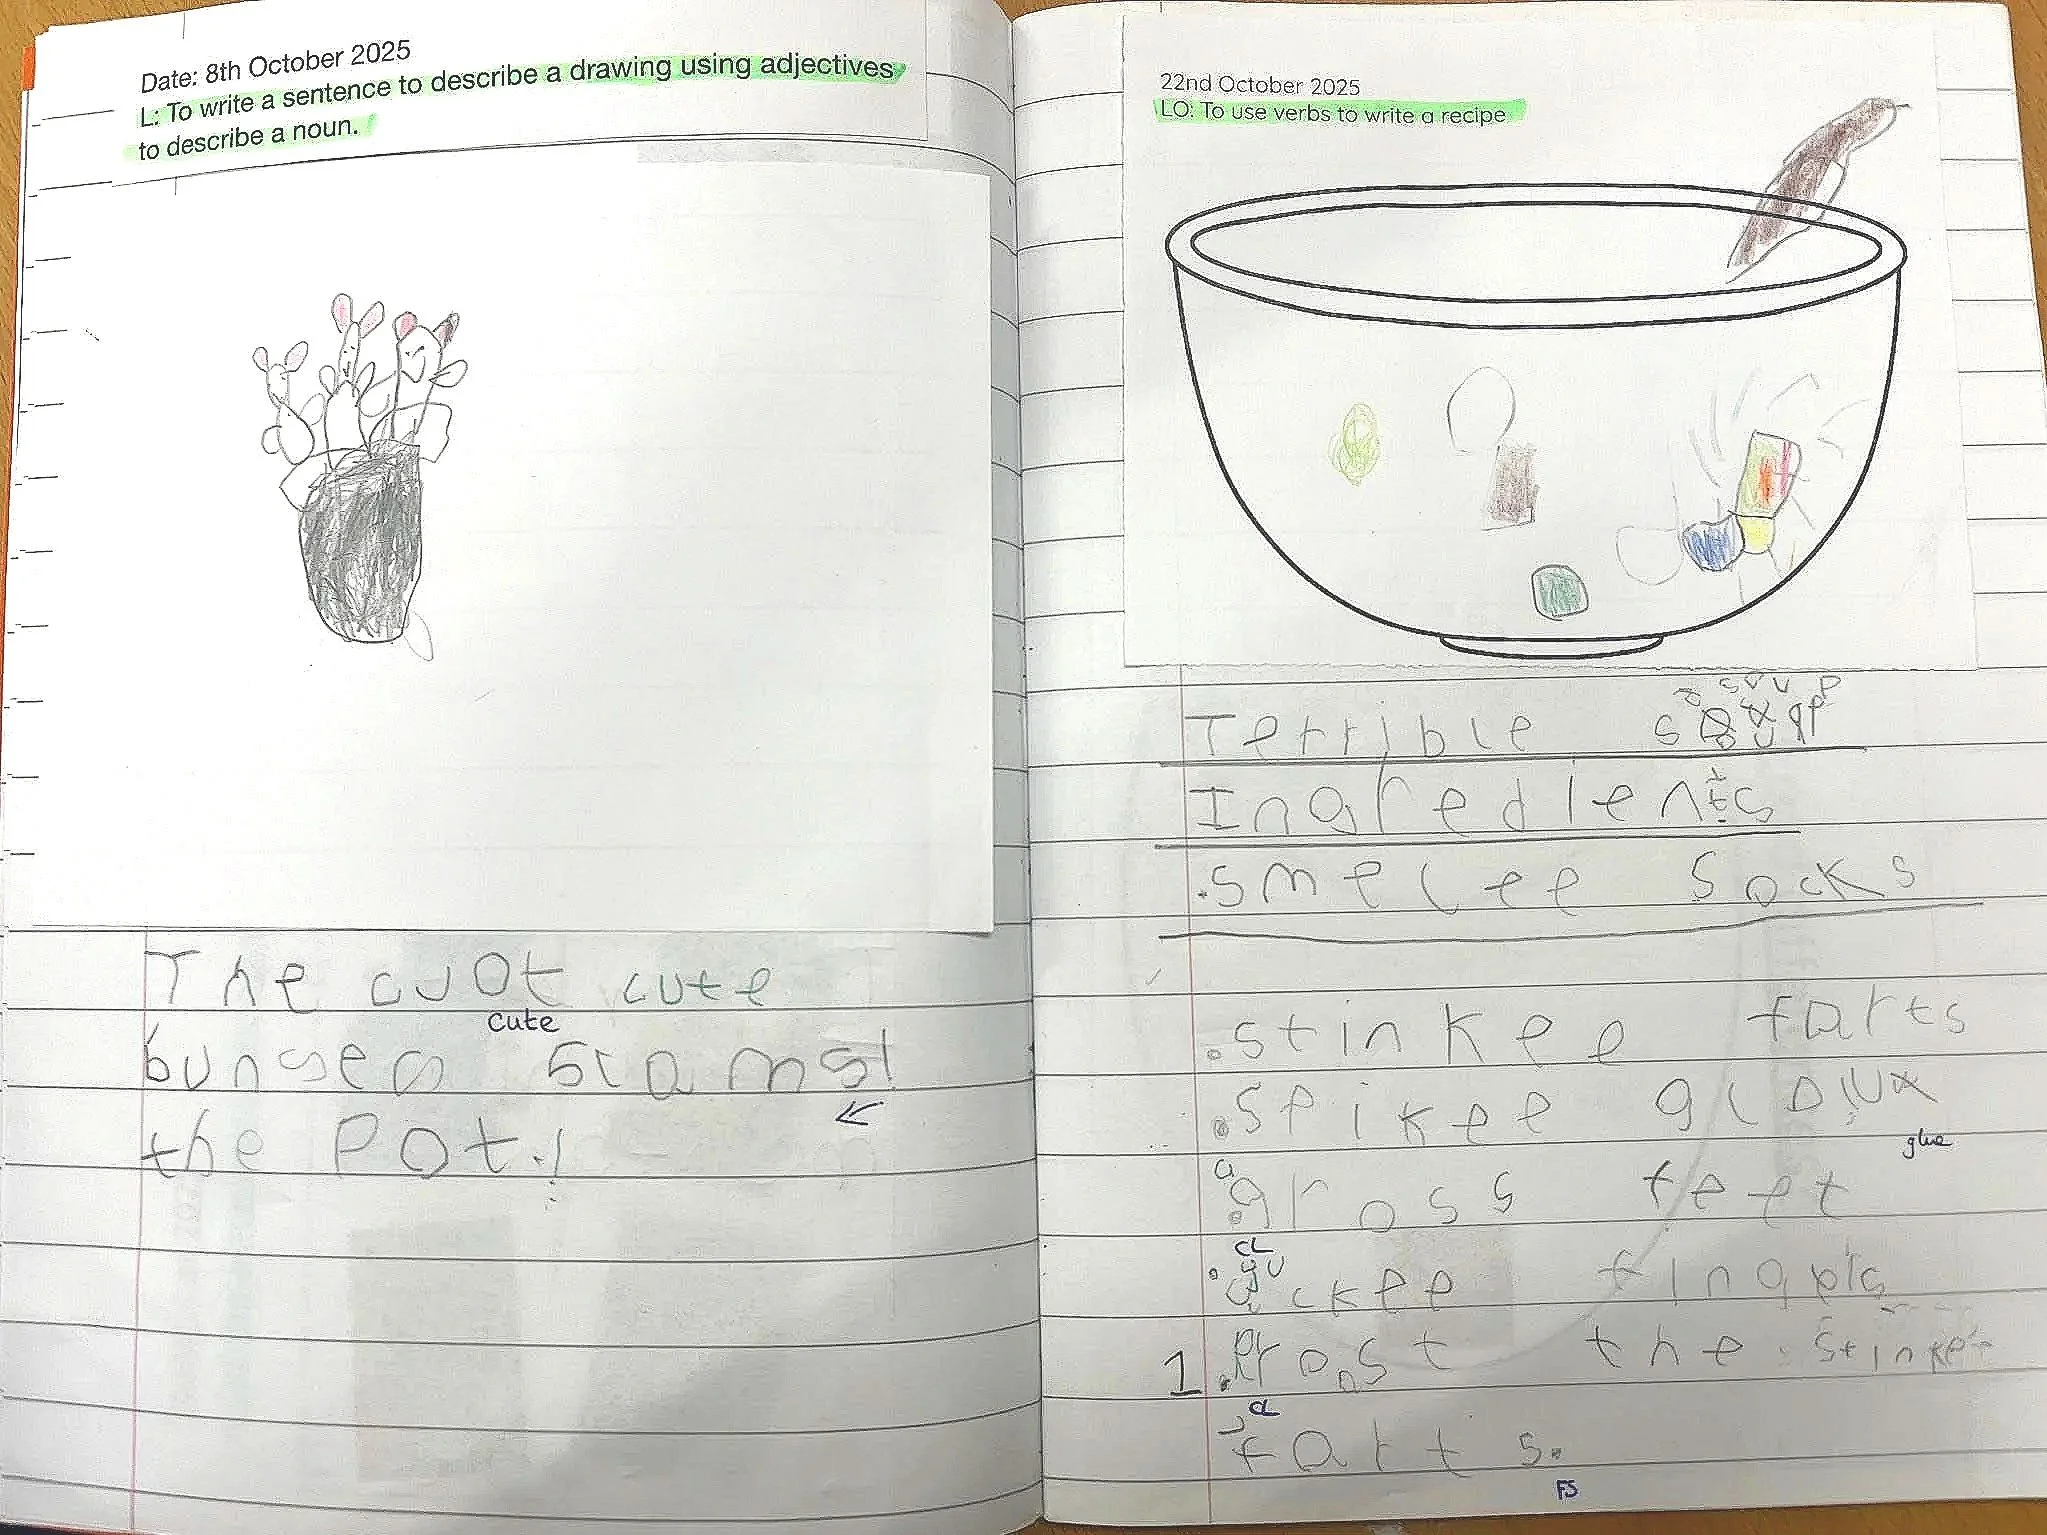 Date: 8th October 2025
L: To write a sentence to describe a drawing using adjectives
to describe a noun.
The cuot cute
cute
the Pot.!
22nd October 2025
LO: To use verbs to write a recipe
Terrible
Ingredients
.smelee socks
.stinkee farts
.spikee
glue
.gross feet
CL
ckee fingers
1. roast the stinkee
CL
farts.
FS